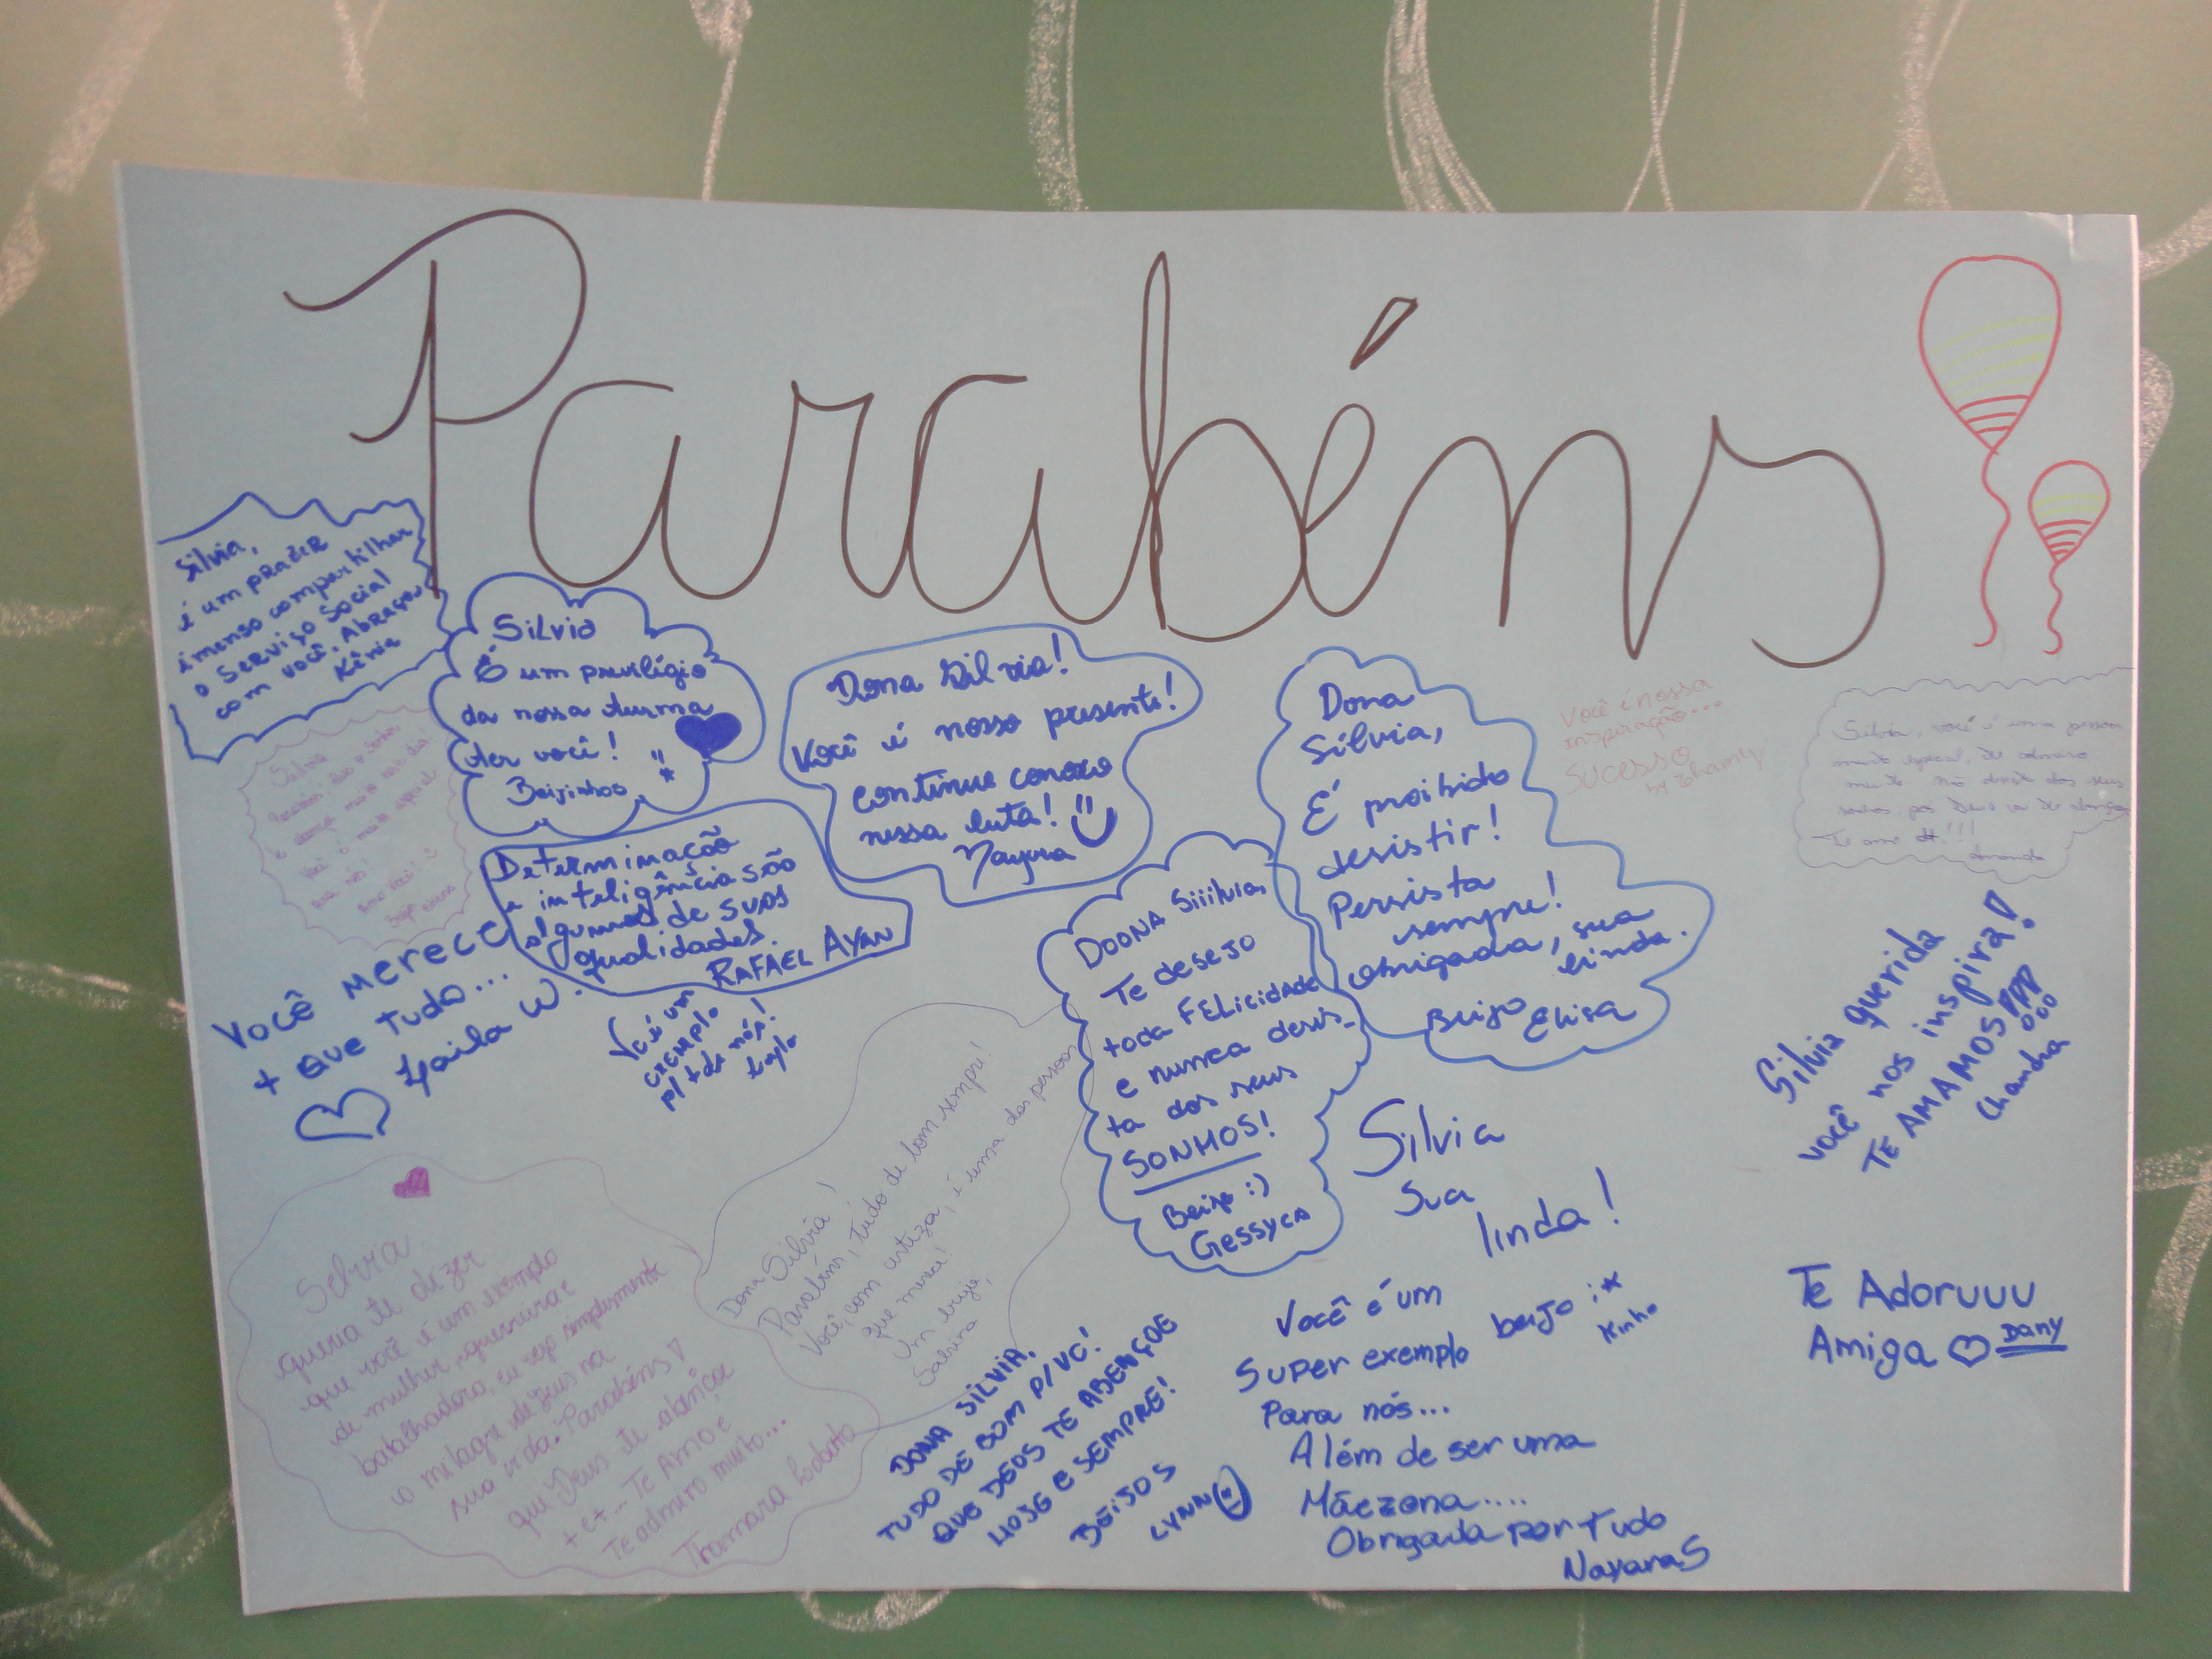 Parabéns
Silvia,
é um prazer
imenso compartilhar
o Serviço Social
com você. Abraços
Kênia
Silvia
É um privilégio
da nossa turma
ter você!
Beijinhos :*
Dona Silvia!
Você é nosso presente!
continue conosco
nessa luta!
Nayara
Dona
Silvia,
É proibido
desistir!
Persista
sempre!
Obrigada, sua
linda.
Beijo Elisa
Você é nossa
inspiração...
SUCESSO
Silvia, você é uma pessoa
muito especial, te admiro
muito não desista dos seus
sonhos
Te amo!!!
Amanda
Silvia
Você é muito especial
Amo você!
Determinação
e inteligência são
algumas de suas
qualidades.
RAFAEL AYAN
Você merece
+ que tudo...
Laila W.
Você é um
exemplo
p/ tds nós!
DOONA Siiilvia,
Te desejo
toda FELicidade
e nunca desis-
ta dos seus
SONHOS!
Beijo :)
Gessyca
Silvia querida
você nos inspira!
TE AMAMOS
Chandra
Silvia
sua
linda!
beijo :*
Kinho
Dona Silvia!
Parabéns, tudo de bom sempre!
Você, com certeza, é uma das pessoas
que merece!
Um beijo,
Sabrina
Selvia
queria te dizer
que você é um exemplo
de mulher, guerreira e
batalhadora, eu vejo simplesmente
o milagre de Deus na
sua vida. Parabéns!
que Deus te abençoe
+ e +... Te Amo e
Te admiro muito...
Thamara
DONA SILVIA,
TUDO DE BOM P/ VC!
QUE DEUS TE ABENÇOE
HOJE E SEMPRE!
BEIJOS
LYNN
Você é um
Super exemplo
Para nós...
Além de ser uma
Mãezona....
Obrigada por tudo
Nayara S
Te Adoruuu
Amiga Dany